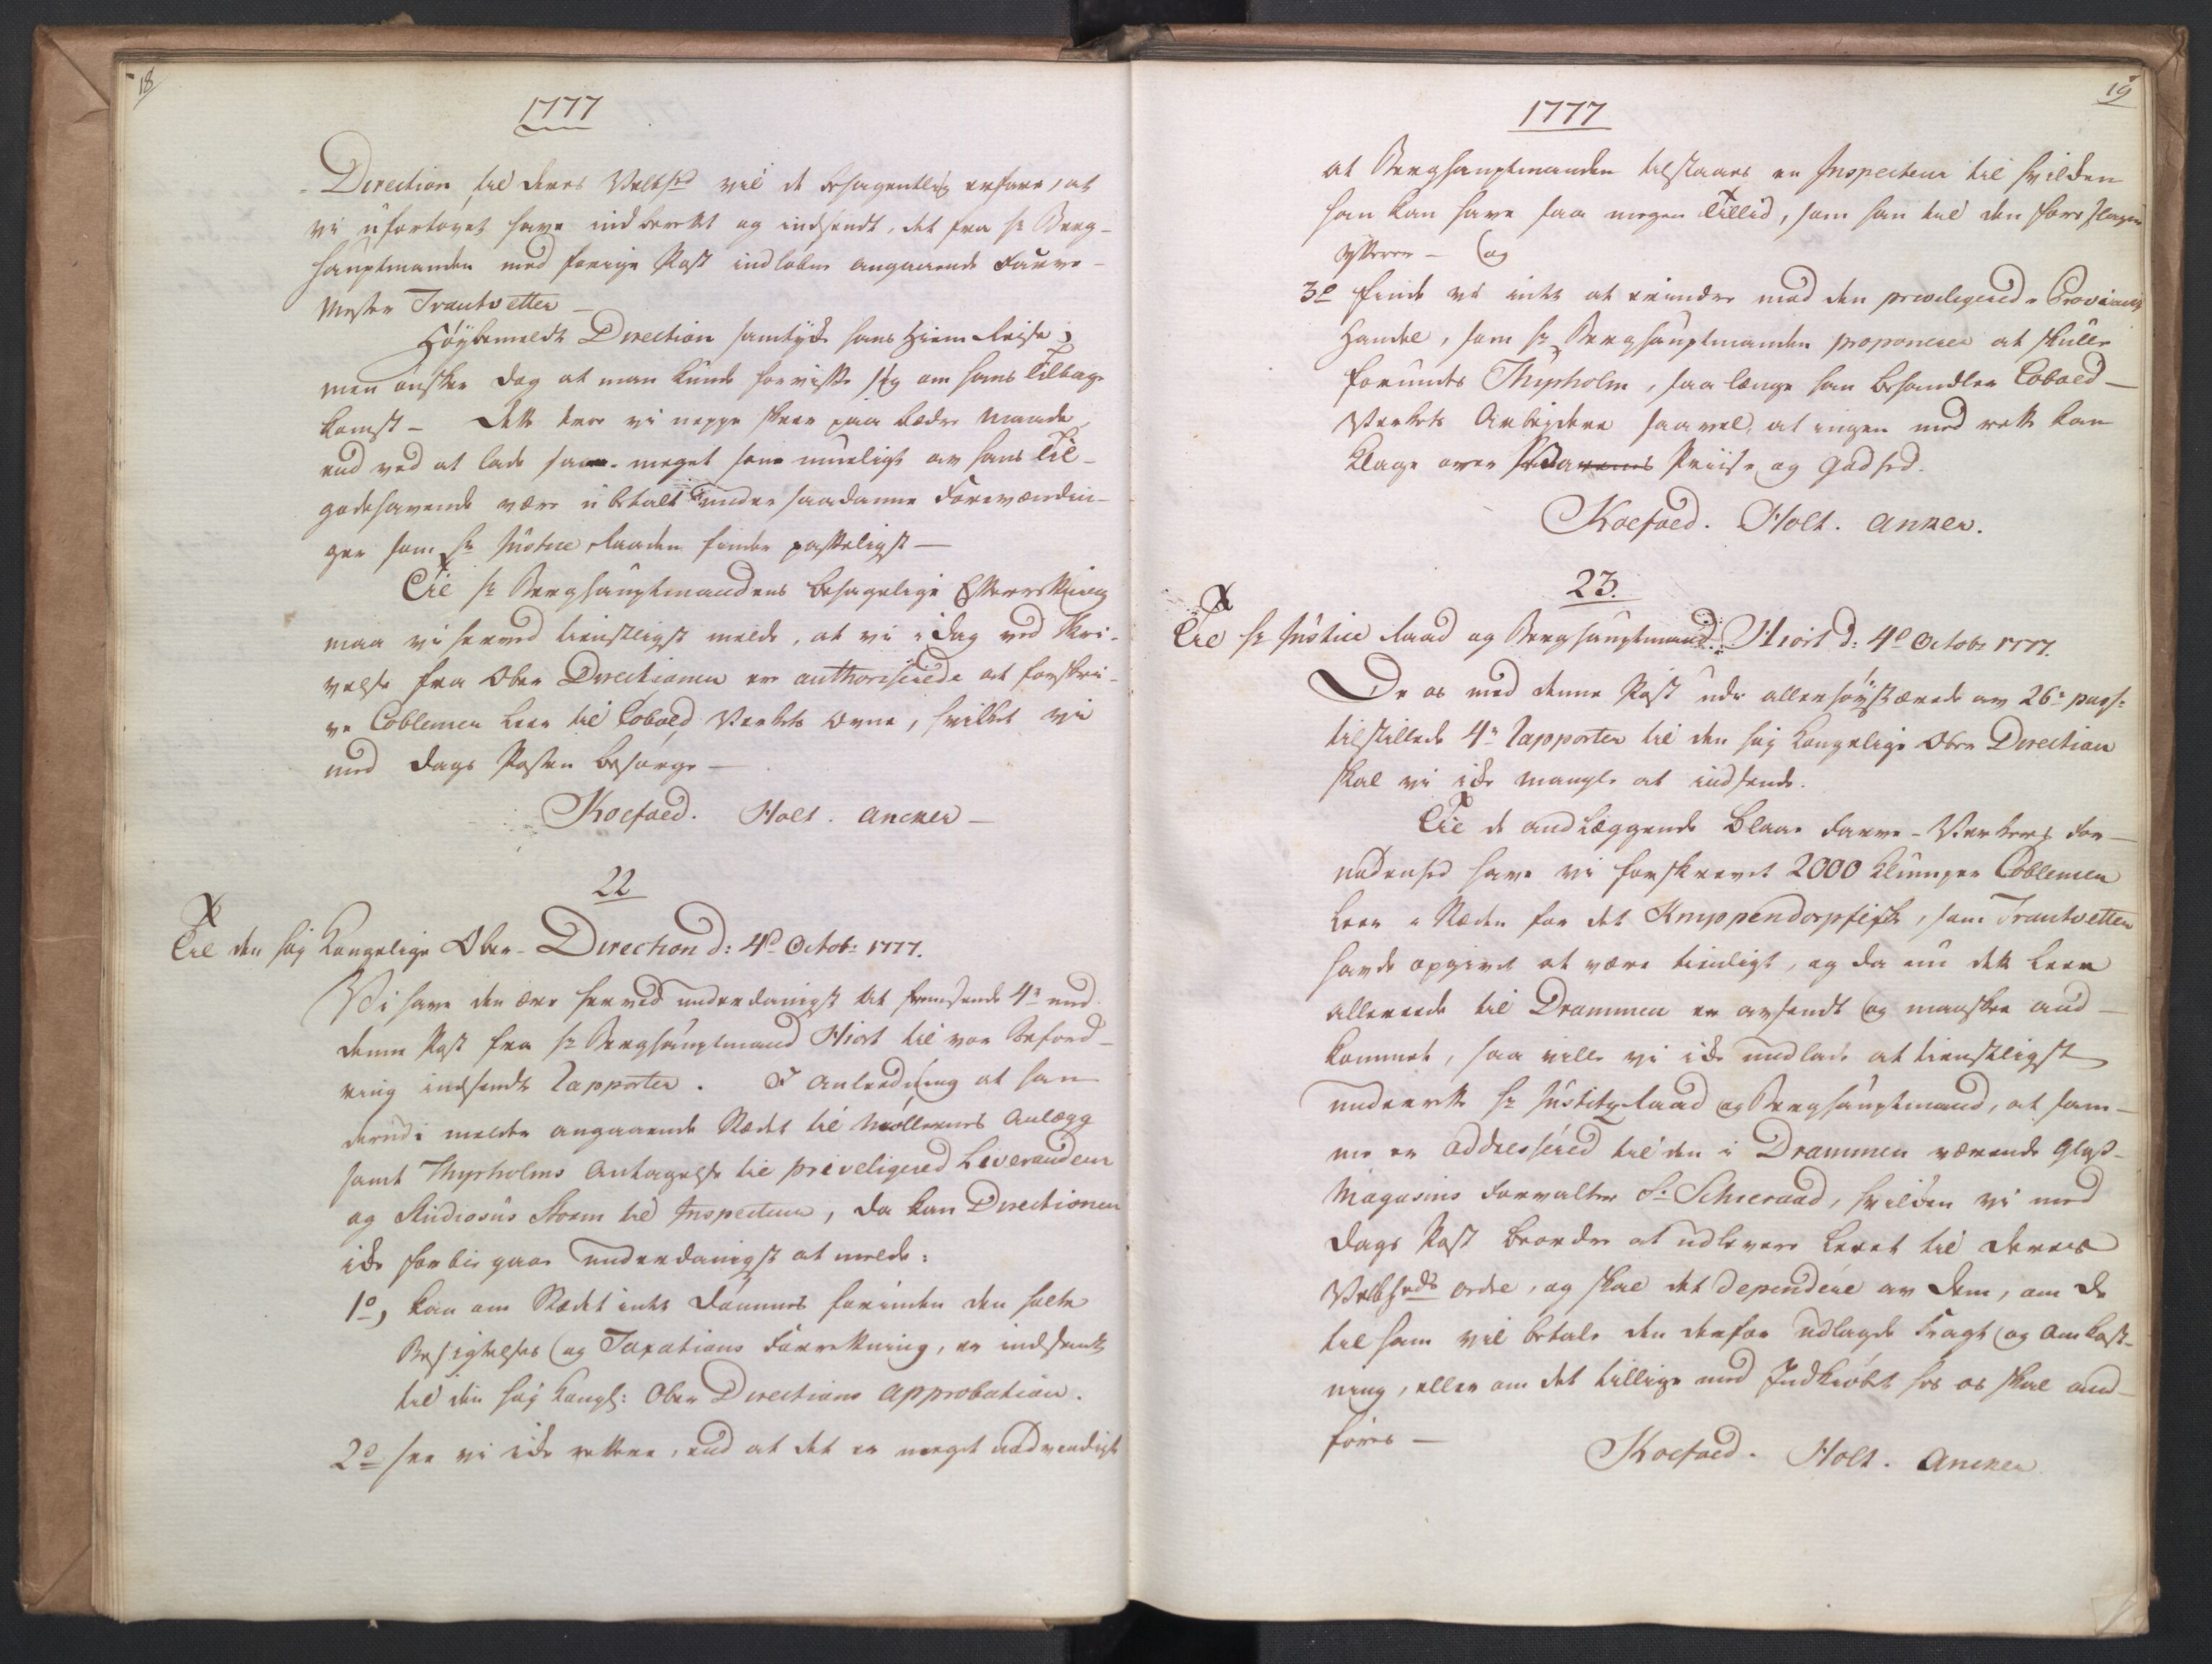 18
1777
Direction, til deres Velbhd vil de behagentlig erfare, at
vi ufortøvet have indberettet og indsendt, det fra Hr Berg-
hauptmanden med forige Post indløbne angaaende Farve-
Mester Trautvetter —
Høybemeldte Direction samtyker hans Hiem Reise;
men ønsker dog at man kunde forvisse sig om hans Tilbage
komst — Dette troe vi neppe skeer paa bædre Maade,
end ved at lade saa meget som mueligt av hans Til-
godehavende være ubetalt under saadanne Forevændin-
ger som Hr Justice Raaden finder passeligst —
Til Hr Berghauptmandens behagelige Efterretning
maa vi herved tienstligst melde, at vi i Dag ved Skri-
velse fra Ober Directionen er authoriserede at forskri-
ve Coblenner Leer til Cobold Verkets Ovne, hvilket vi
med Dags Posten besørge —
Koefoed. Holt. Ancker —
22
Til den høy Kongelige Ober-Direction d: 4de Octob: 1777.
Vi have den ære herved underdanigst at fremsende 4re med
denne Post fra Hr Berghauptmand Hiort til vor Beford-
ring indsendte Rapporter. I Anledning at han
derudi melder angaaende Stædet til Møllernes Anlægg
samt Thyrholms Antagelse til priveligered Leverandeur
og Studiosus Storm til Inspecteur, da kan Directionen
ike forbiegaae underdanigst at melde:
1o, kan om Stædet intet dømmes forinden den holte
Besigtelses og Taxations Forretning, er indsendt
til den høy Kongl: Ober Directions Approbation.
2o see vi ike rettere, end at det er meget nødvendigt
19
1777
at Berghauptmanden tilstaaes en Inspecteur til hvilken
han kan have saa megen Tillid, som han til den foreslagne
yttrer — og
3o finde vi intet at erindre mod den priveligerede Proviant
Handel, som Hr Berghauptmanden proponerer at skulle
forundes Thyrholm, saa længe han behandler Cobold-
Verkets Arbeydere saa vel, at ingen med rette kan
klage over Priise og Godhed.
Koefoed. Holt. Anker.
23.
Til Hr Justice Raad og Berghauptmand Hiort d: 4de Octobr 1777.
De os med denne Post under allerhøystærede av 26e pass:
tilstillede 4re Rapporter til den høy Kongelige Ober Direction
skal vi ike mangle at indsende.
Til de andlæggende Blaae Farve-Verkers For-
nødenhed have vi forskrevet 2000 Klumper Coblenner
Leer i Stæden for det Knyppendorpfiske, som Trautvetter
havde opgivet at være tienligt, og da nu dette Leer
allereede til Drammen er avsendt og maaskee and-
kommet, saa ville vi ike undlade at tienstligst
underrette Hr Justitz Raad og Berghauptmand, at sam-
me er addressered til den i Drammen værende Glas-
Magasins Forvalter Sr Schieraad, hvilken vi med
Dags Post beordre at udlevere Leeret til Deres
Velbhds ordre, og skal det dependere av Dem, om De
til ham vil betale den derfor udlagde Fragt og Omkost-
ning, eller om det tillige med Indkiøbet hos os skal and-
føres —
Koefoed. Holt. Ancker